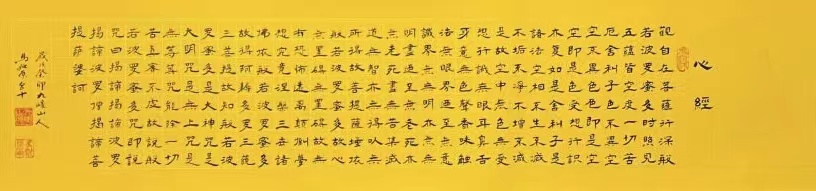 心經
觀自在菩薩行深般
若波羅蜜多時照見
五蘊皆空度一切苦
厄舍利子色不異空
空不異色色即是空
空即是色受想行識
亦復如是舍利子是
諸法空相不生不滅
不垢不淨不增不減
是故空中無色無受
想行識無眼耳鼻舌
身意無色聲香味觸
法無眼界乃至無意
識界無無明亦無無
明盡乃至無老死亦
無老死盡無苦集滅
道無智亦無得以無
所得故菩提薩埵依
般若波羅蜜多故心
無罣礙無罣礙故無
有恐怖遠離顛倒夢
想究竟涅槃三世諸
佛依般若波羅蜜多
故得阿耨多羅三藐
三菩提故知般若波
羅蜜多是大神咒是
大明咒是無上咒是
無等等咒能除一切
苦真實不虛故說般
若波羅蜜多咒即說
咒曰揭諦揭諦波羅
揭諦波羅僧揭諦菩
提薩婆訶
癸卯九山人